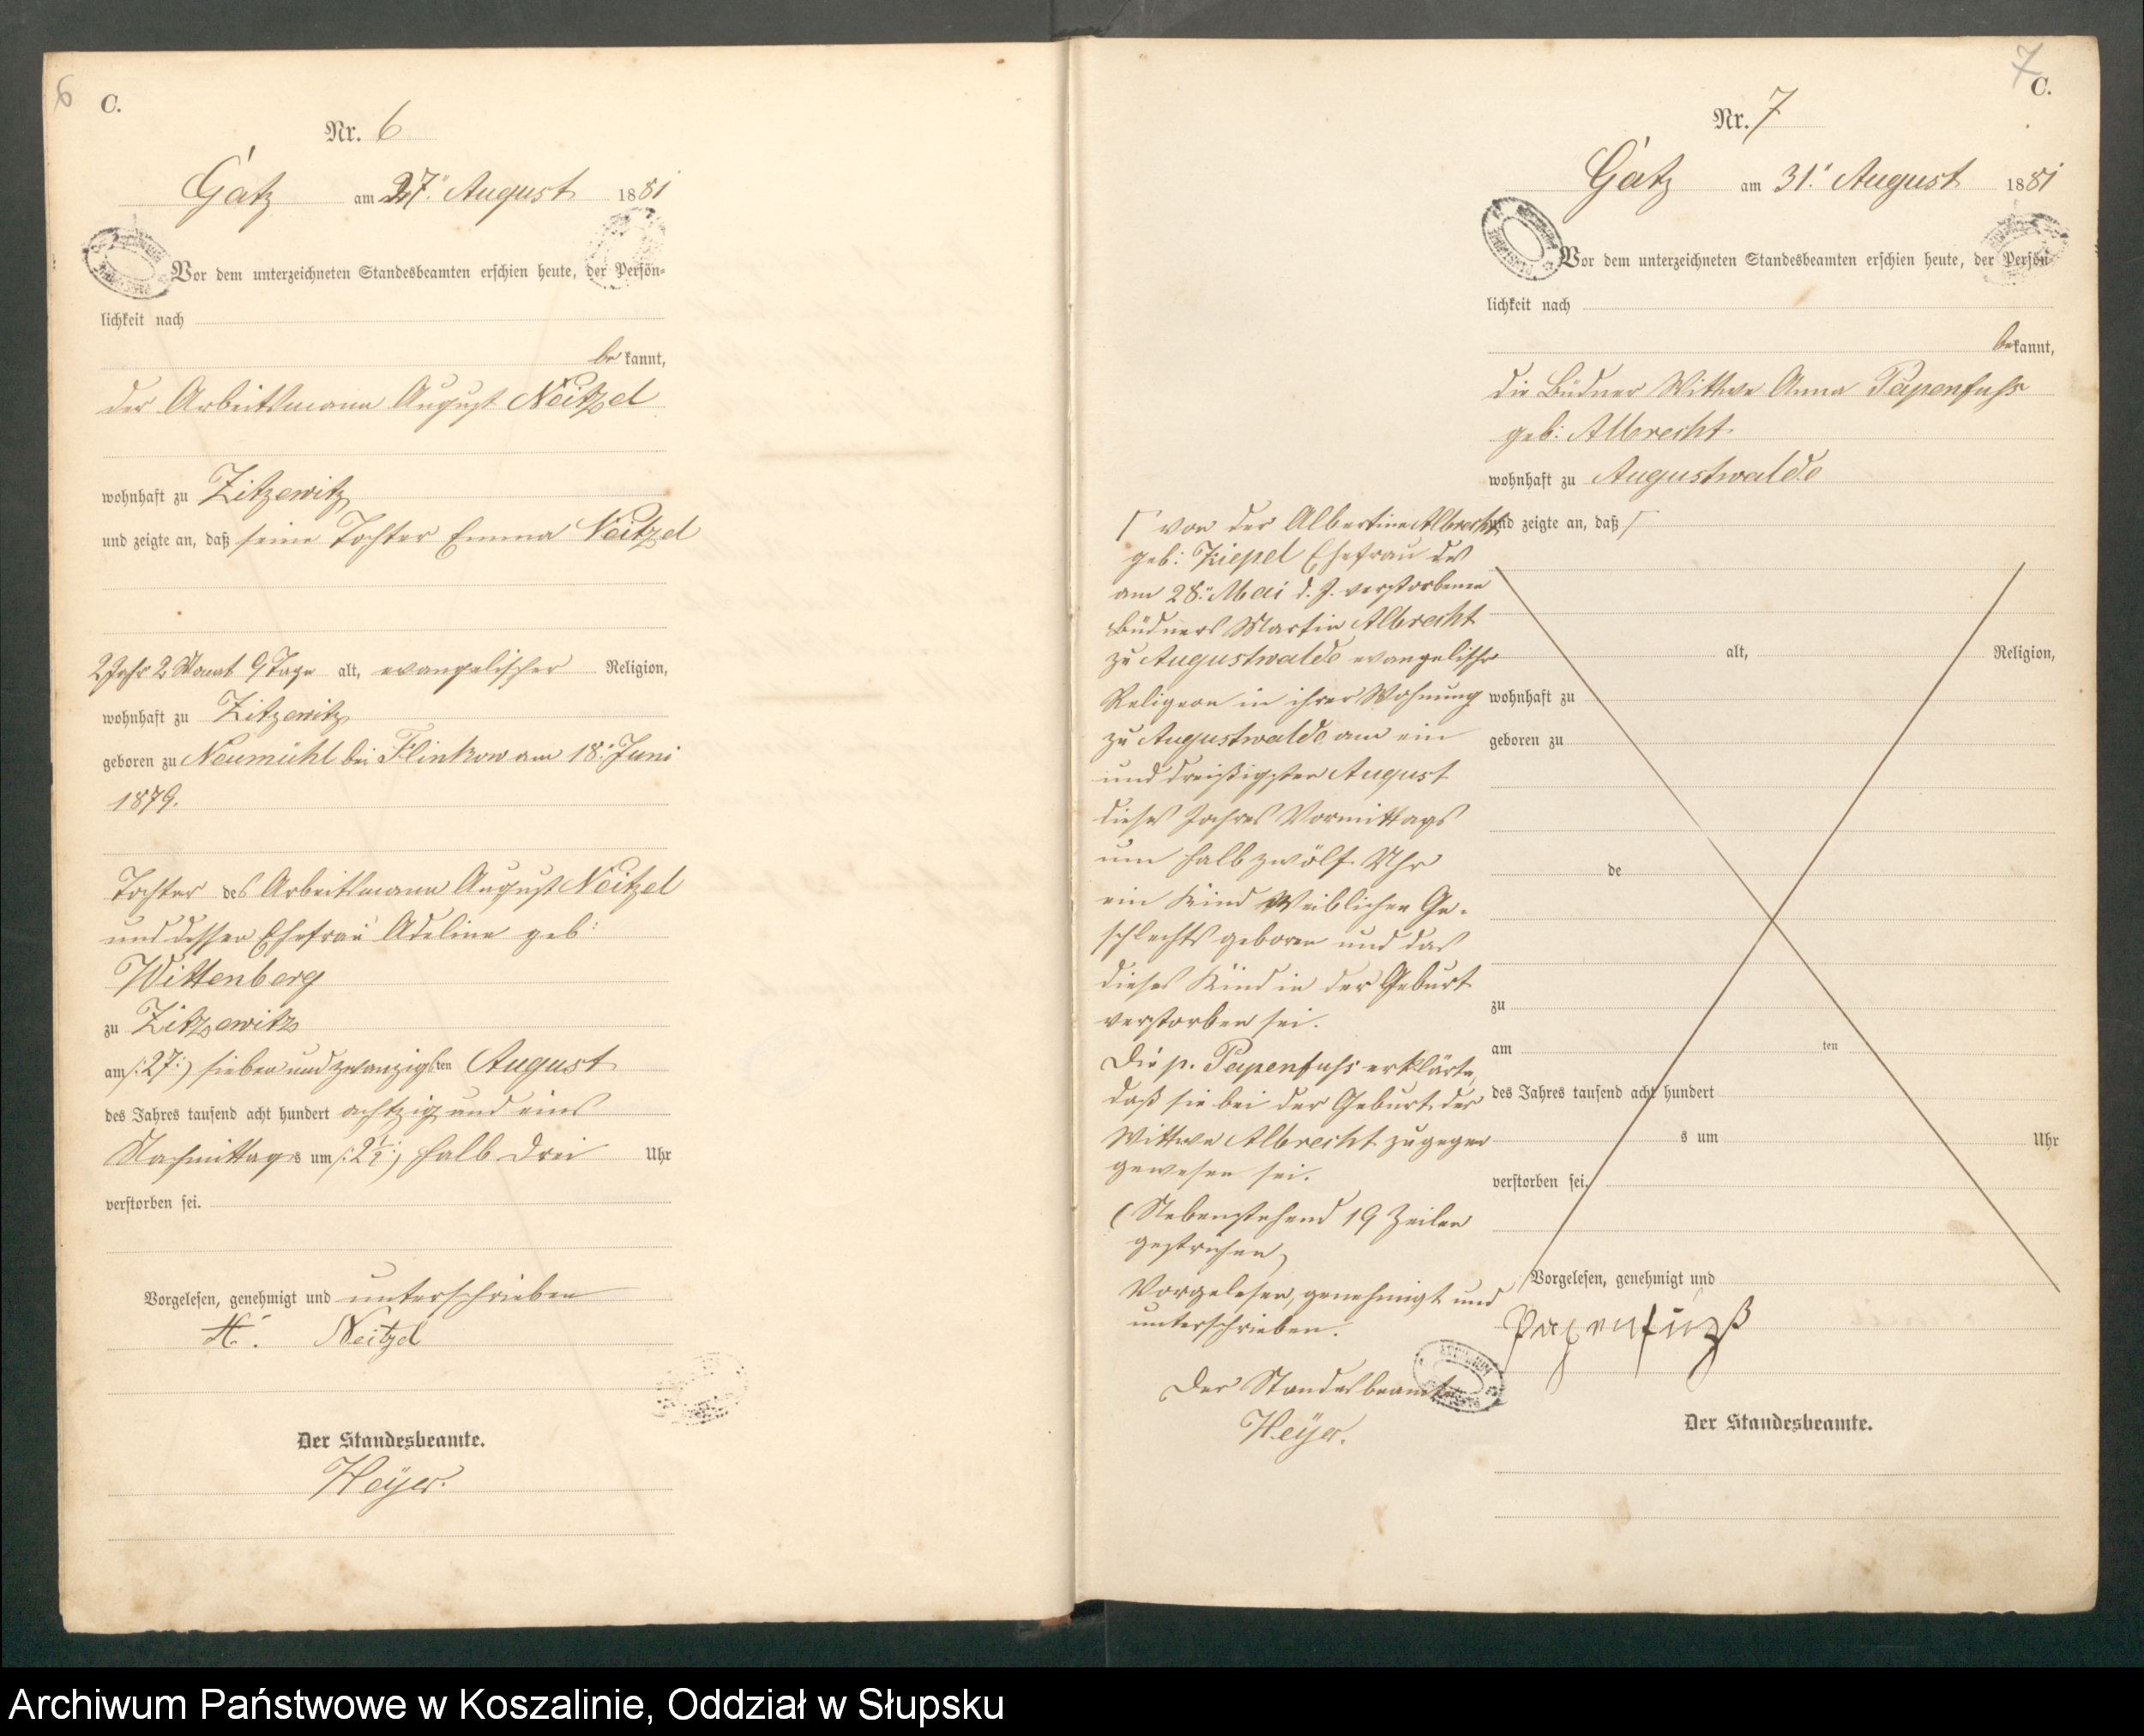 6
C.
Nr. 6
Gatz am 27. August 1881
Vor dem unterzeichneten Standesbeamten erschien heute, der Persön-
lichkeit nach
be kannt,
der Arbeitsmann August Neitzel
wohnhaft zu Zitzewitz
und zeigte an, daß seine Tochter Emma Neitzel
2 Jahr 2 Monat 9 Tage alt, evangelischer Religion,
wohnhaft zu Zitzewitz
geboren zu Neumühl bei Flinkow am 18. Juni
1879.
Tochter des Arbeitsmann August Neitzel
und dessen Ehefrau Adeline geb:
Wittenberg
zu Zitzewitz
am /:27:/ sieben und zwanzigsten August
des Jahres tausend acht hundert achtzig und eins
Nachmittags um /:2½:/ halb drei Uhr
verstorben sei.
Vorgelesen, genehmigt und unterschrieben
Neitzel
Der Standesbeamte.
Heyer.
7
C.
Nr. 7
Gatz am 31. August 1881
Vor dem unterzeichneten Standesbeamten erschien heute, der Persön-
lichkeit nach
bekannt,
die Büdner Wittwe Anna Papenfuhs
geb: Albrecht
wohnhaft zu Augustwalde
und zeigte an, daß Γ
Γ von der Albertine Albrecht
geb: Kiepel Ehefrau des
am 28. Mai d. J. verstorbenen
Büdners Martin Albrecht
zu Augustwalde evangelischer
Religion in ihrer Wohnung
zu Augustwalde am ein
und dreißigsten August
dieses Jahres Vormittags
um halb zwölf Uhr
ein Kind Weiblichen Ge-
schlechts geboren und das
dieses Kind in der Geburt
verstorben sei.
Die p. Papenfuhs erklärte,
daß sie bei der Geburt der
Wittwe Albrecht zugegen
gewesen sei.
(Nebenstehend 19 Zeilen
gestrichen)
Vorgelesen, genehmigt und
unterschrieben.
Der Standesbeamte
Heyer.
alt, Religion,
wohnhaft zu
geboren zu
de
zu
am ten
des Jahres tausend acht hundert
s um Uhr
verstorben sei.
Vorgelesen, genehmigt und
Papenfußß
Der Standesbeamte.
Archiwum Państwowe w Koszalinie, Oddział w Słupsku